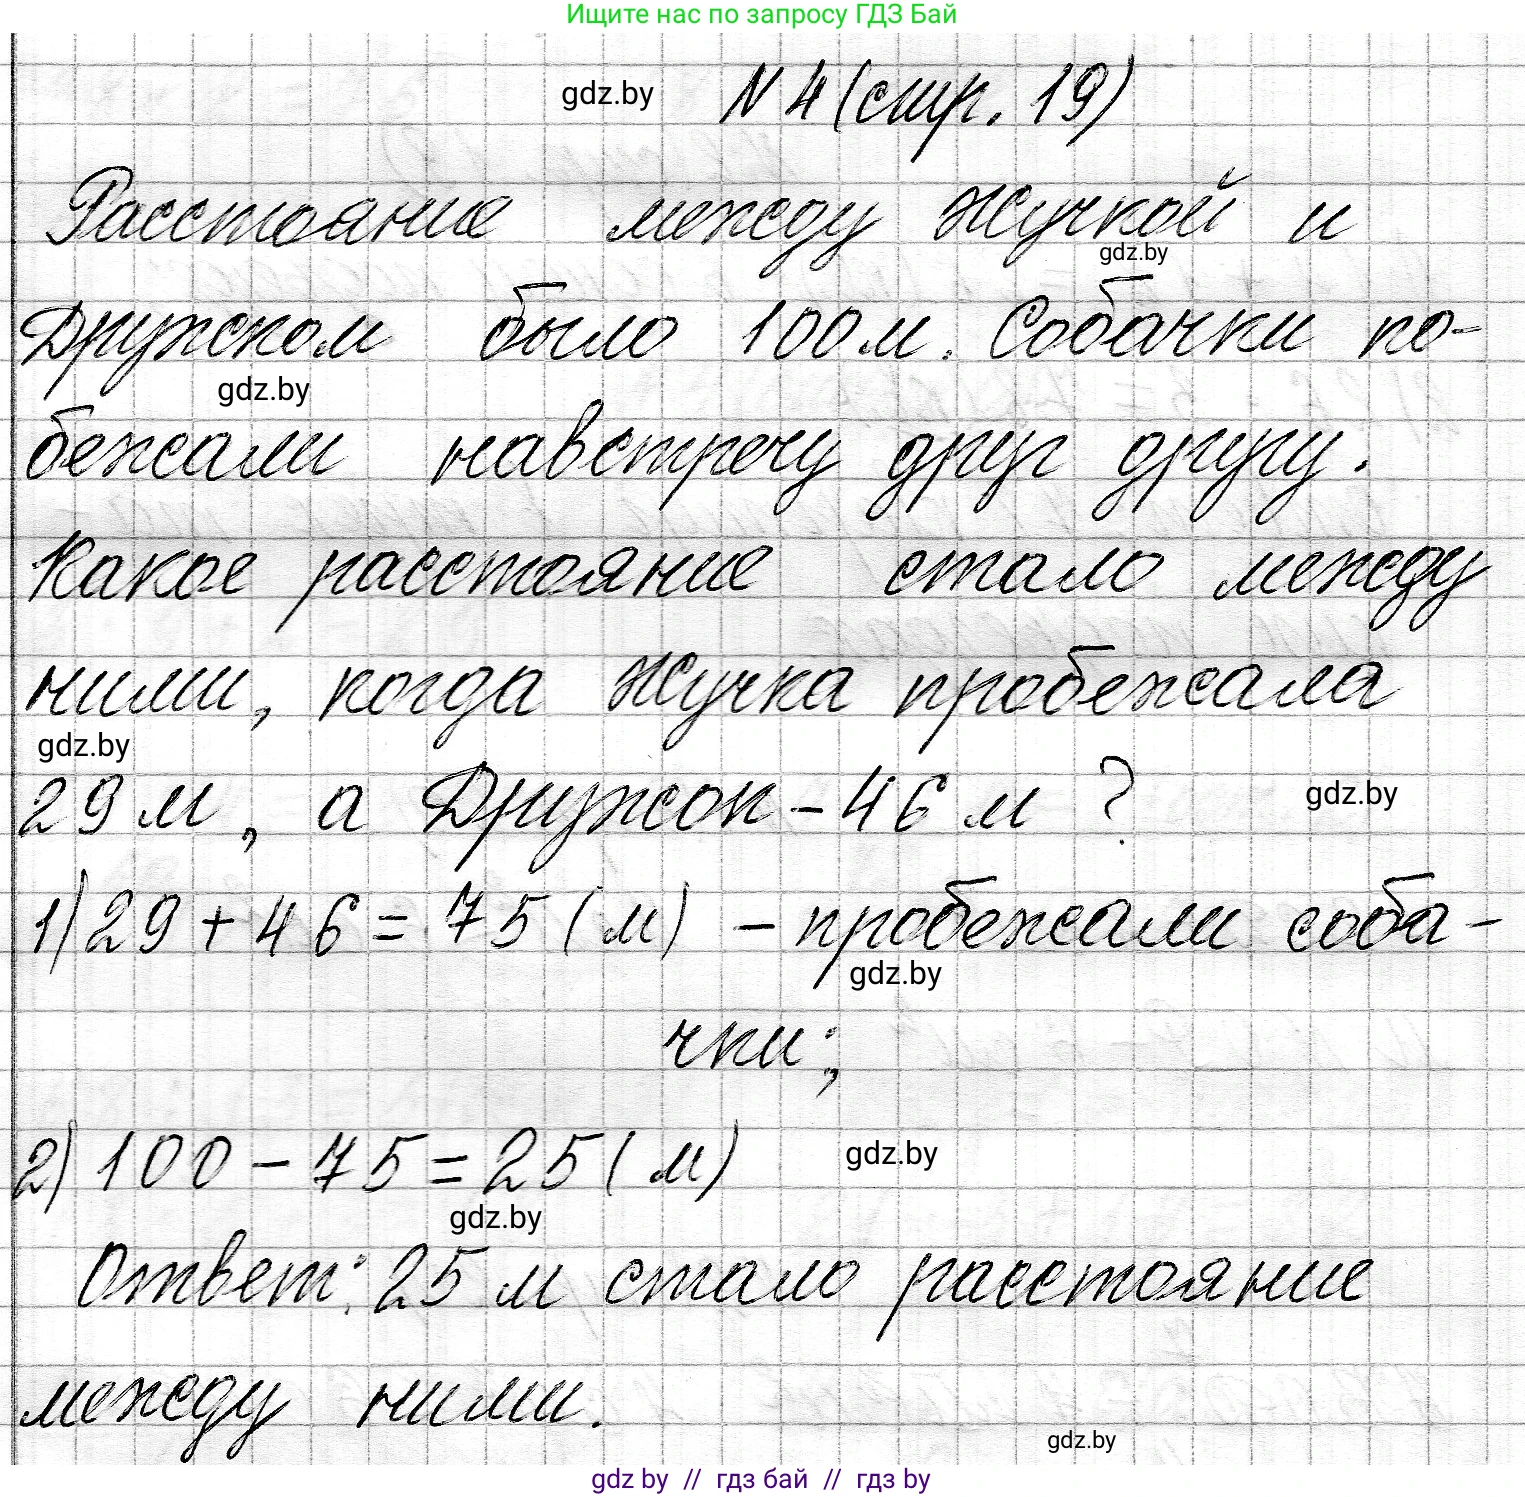 Ищите нас по запросу ГДЗ Бай
gdz.by
N 4 (стр. 19)
Расстояние между Жучкой и
gdz.by
Дружком было 100 м. Собачки по-
gdz.by
бежали навстречу друг другу.
Какое расстояние стало между
ними, когда Жучка пробежала
gdz.by
29 м, а Дружок - 46 м?
gdz.by
1) 29 + 46 = 75 (м) - пробежали соба-
gdz.by
чки;
2) 100 - 75 = 25 (м)
gdz.by
gdz.by
Ответ: 25 м стало расстояние
между ними.
gdz.by
gdz by // гдз бай // гдз by